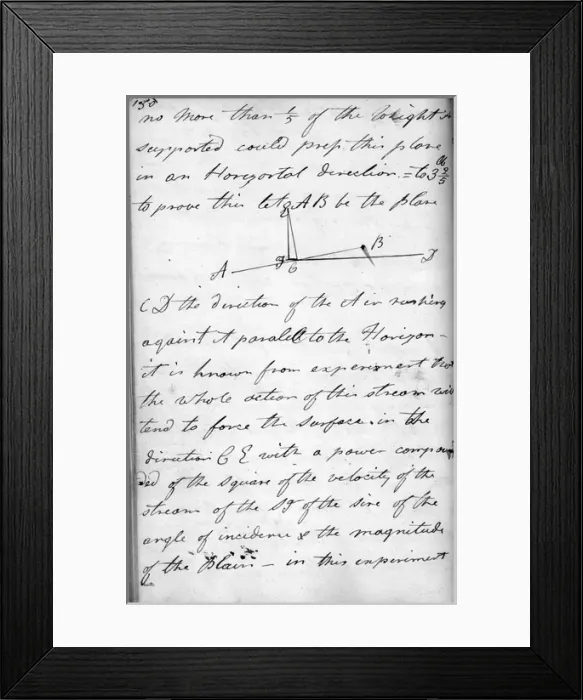 153
no More than 1/5 of the weight
supported could press this plane
in an Horizontal direction = to 3 2/5
to prove this let AB be the plane
E
B
A F C D
CD the direction of the Air rushing
against it paralell to the Horizon -
it is known from experiment that
the whole action of this stream will
tend to force the surface in the
direction CE with a power compoun
ded of the square of the velocity of the
stream of the Sq of the sine of the
angle of incidence & the magnitude
of the Plain - in this experiment